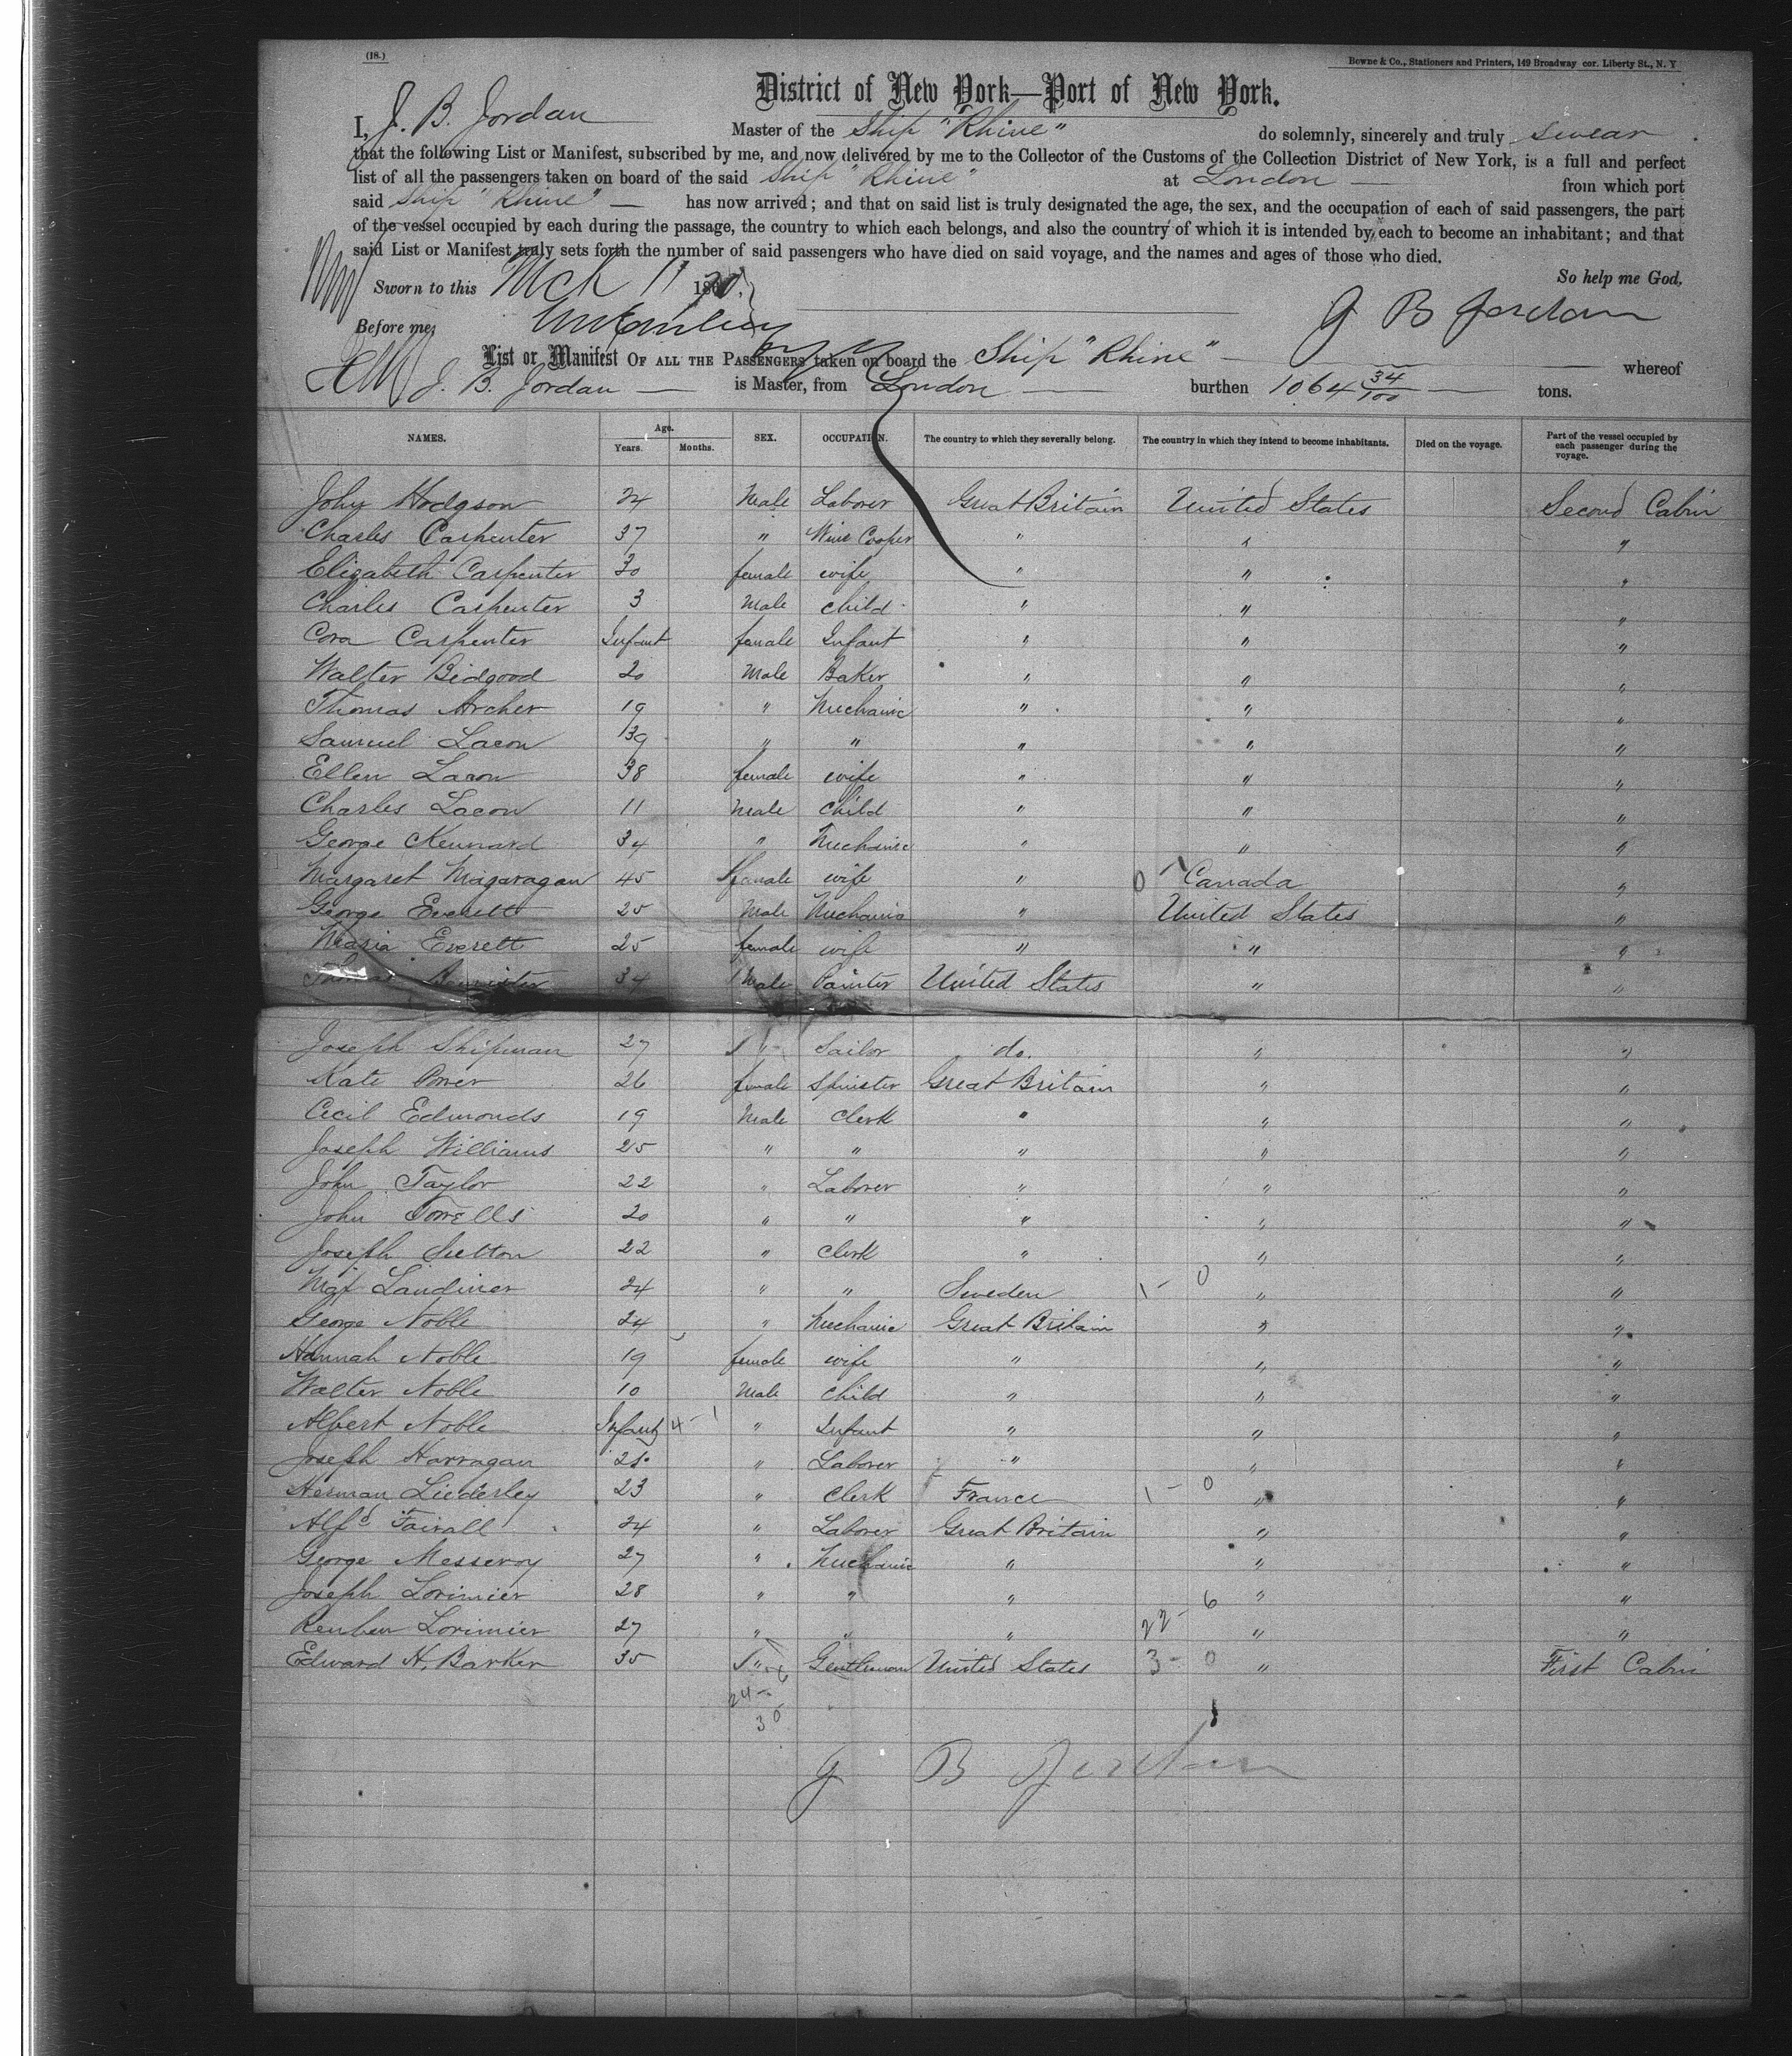 (18.)
Bowne & Co., Stationers and Printers, 149 Broadway cor. Liberty St., N. Y
District of New York—Port of New York.
I, J. B. Jordan Master of the Ship "Rhine" do solemnly, sincerely and truly swear
that the following List or Manifest, subscribed by me, and now delivered by me to the Collector of the Customs of the Collection District of New York, is a full and perfect
list of all the passengers taken on board of the said Ship "Rhine" at London from which port
said Ship "Rhine" has now arrived; and that on said list is truly designated the age, the sex, and the occupation of each of said passengers, the part
of the vessel occupied by each during the passage, the country to which each belongs, and also the country of which it is intended by each to become an inhabitant; and that
said List or Manifest truly sets forth the number of said passengers who have died on said voyage, and the names and ages of those who died.
So help me God,
Sworn to this Mch 11 1870.
J B Jordan
Before me,
List or Manifest OF ALL THE PASSENGERS taken on board the Ship "Rhine" whereof
J. B. Jordan is Master, from London burthen 1064 34/100 tons.
NAMES. Age. Years. Months. SEX. OCCUPATION. The country to which they severally belong. The country in which they intend to become inhabitants. Died on the voyage. Part of the vessel occupied by each passenger during the voyage.
John Hodgson 24 Male Laborer Great Britain United States Second Cabin
Charles Carpenter 37 " Wine Cooper " " "
Elizabeth Carpenter 30 female wife " " "
Charles Carpenter 3 Male child " " "
Cora Carpenter Infant female Infant " " "
Walter Bidgood 20 Male Baker " " "
Thomas Archer 19 " Mechanic " " "
Samuel Lacon 39 " " " " "
Ellen Lacon 38 female wife " " "
Charles Lacon 11 Male child " " "
George Kennard 34 " Mechanic " " "
Margaret Magaragan 45 female wife " 0 Canada "
George Everett 25 Male Mechanic " United States "
Maria Everett 25 female wife " " "
Thomas Bannister 34 Male Painter United States " "
Joseph Shipman 27 " Sailor do. " "
Kate Power 26 female Spinster Great Britain " "
Cecil Edmonds 19 Male Clerk " " "
Joseph Williams 25 " " " " "
John Taylor 22 " Laborer " " "
John Towells 20 " " " " "
Joseph Sutton 22 " Clerk " " "
Landiner 24 " " Sweden 1 - 0 " "
George Noble 24 " Mechanic Great Britain " "
Hannah Noble 19 female wife " " "
Walter Noble 10 Male child " " "
Albert Noble Infant 4 - 1 " Infant " " "
Joseph Harragan 21 " Laborer " " "
Herman Liederley 23 " Clerk France 1 - 0 " "
Alfd Fairall 24 " Laborer Great Britain " "
George Messervy 27 " Mechanic " " "
Joseph Lorimier 28 " " " 6 " "
Reuben Lorimier 27 " " " 22 - " "
Edward H. Barker 35 " Gentleman United States 3 - 0 " First Cabin
24 - 6
30
J B Jordan